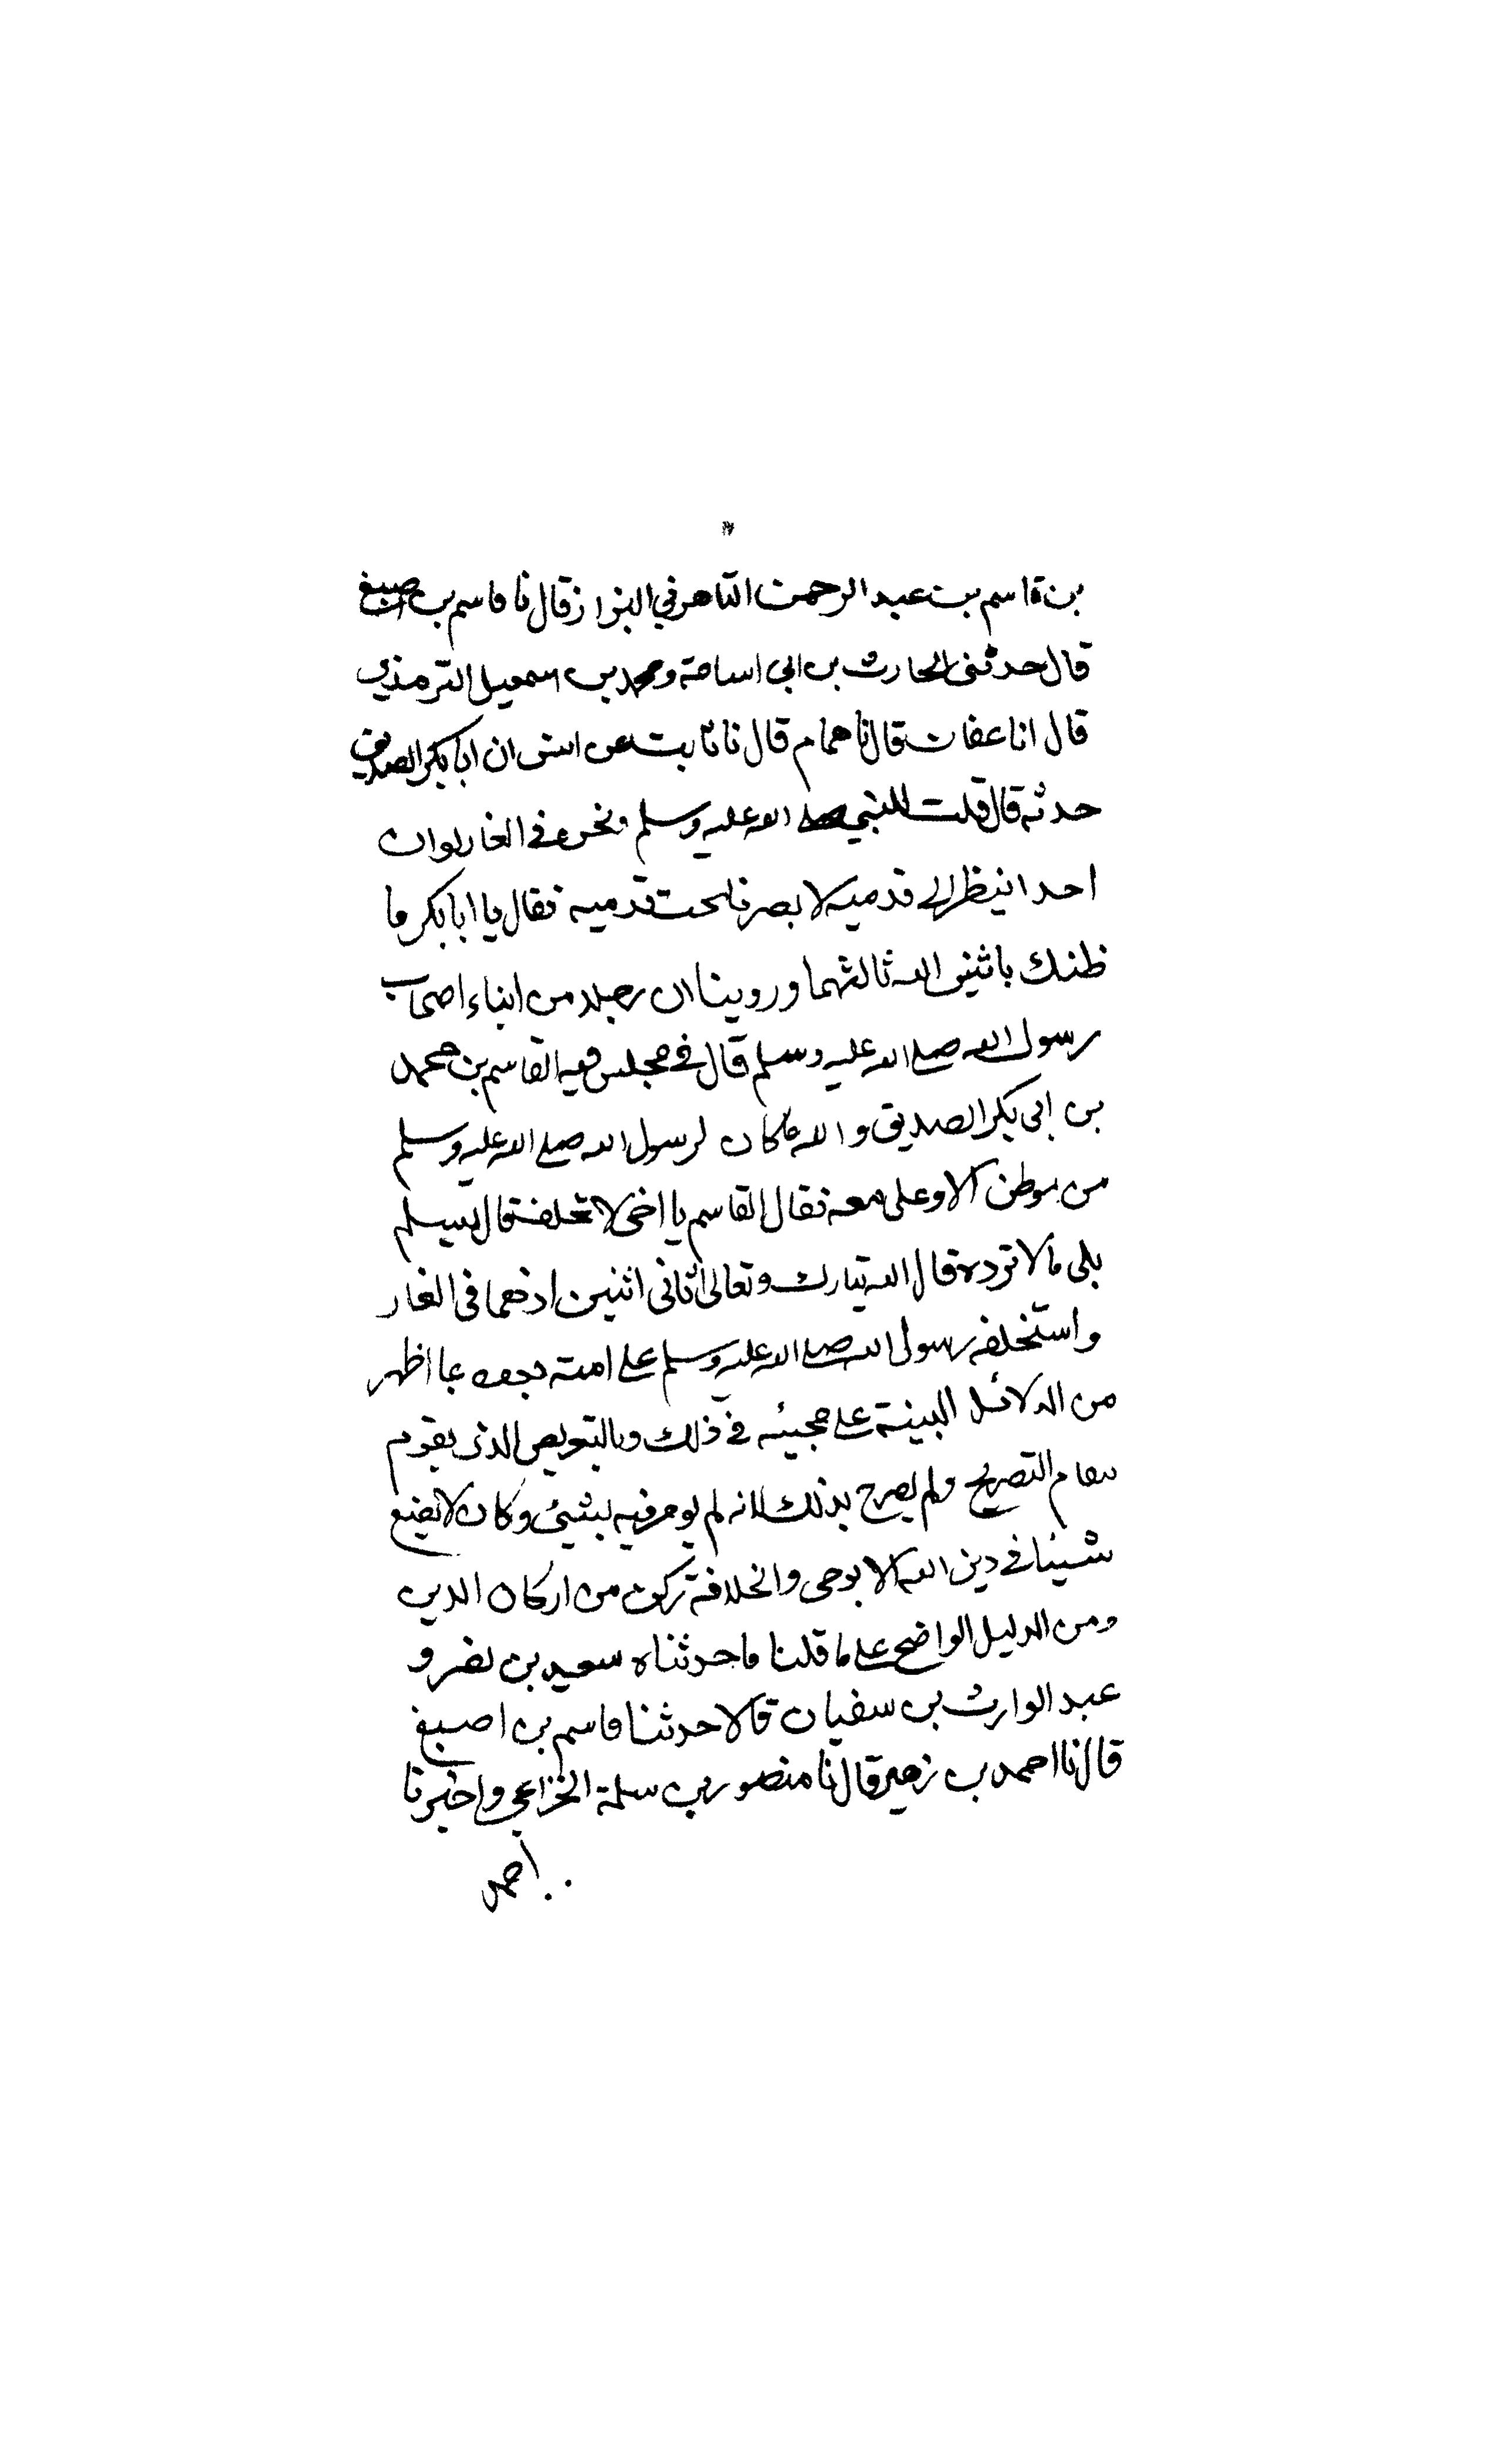 بن قاسم بن عبد الرحمن التاهرتي البزاز قال نا قاسم بن اصبغ
قال حدثنى الحارث بن ابى اسامة ومحمد بن اسمعيل الترمذي
قال انا عفان قال نا همام قال نا ثابت عن انس ان ابا بكر الصديق
حدثه قال قلت للنبي صلے الله عليه وسلم ونحن فى الغار لو ان
احدا ينظر الى قدميه لابصرنا تحت قدميه فقال يا ابا بكر ما
ظنك باثنين الله ثالثهما وروينا ان رجلا من ابناء اصحاب
رسول الله صلے الله عليه وسلم قال فى مجلس فيه القاسم بن محمد
بن ابى بكر الصديق والله ما كان لرسول الله صلے الله عليه وسلم
من موطن الا وعلى معه فقال القاسم يا اخى لا تحلف قال هلم
بلى ما لا ترده قال الله تبارك وتعالى ثانى اثنين اذ هما فى الغار
واستخلفه رسول الله صلے الله عليه وسلم على امته بعده بما اظهر
من الدلائل البينة على محبته فى ذلك وبالتعريض الذى يقوم
مقام التصريح ولم يصرح بذلك لانه لم يومر فيه بشيئ وكان لا يصنع
شيئا فى دين الله الا بوحى والخلافة ركن من اركان الدين
ومن الدليل الواضح على ما قلنا ما حدثناه سعيد بن نصر و
عبد الوارث بن سفيان قالا حدثنا قاسم بن اصبغ
قال نا احمد بن زهير قال نا منصور بن سلمة الخزاعي واخبرنا
احمد